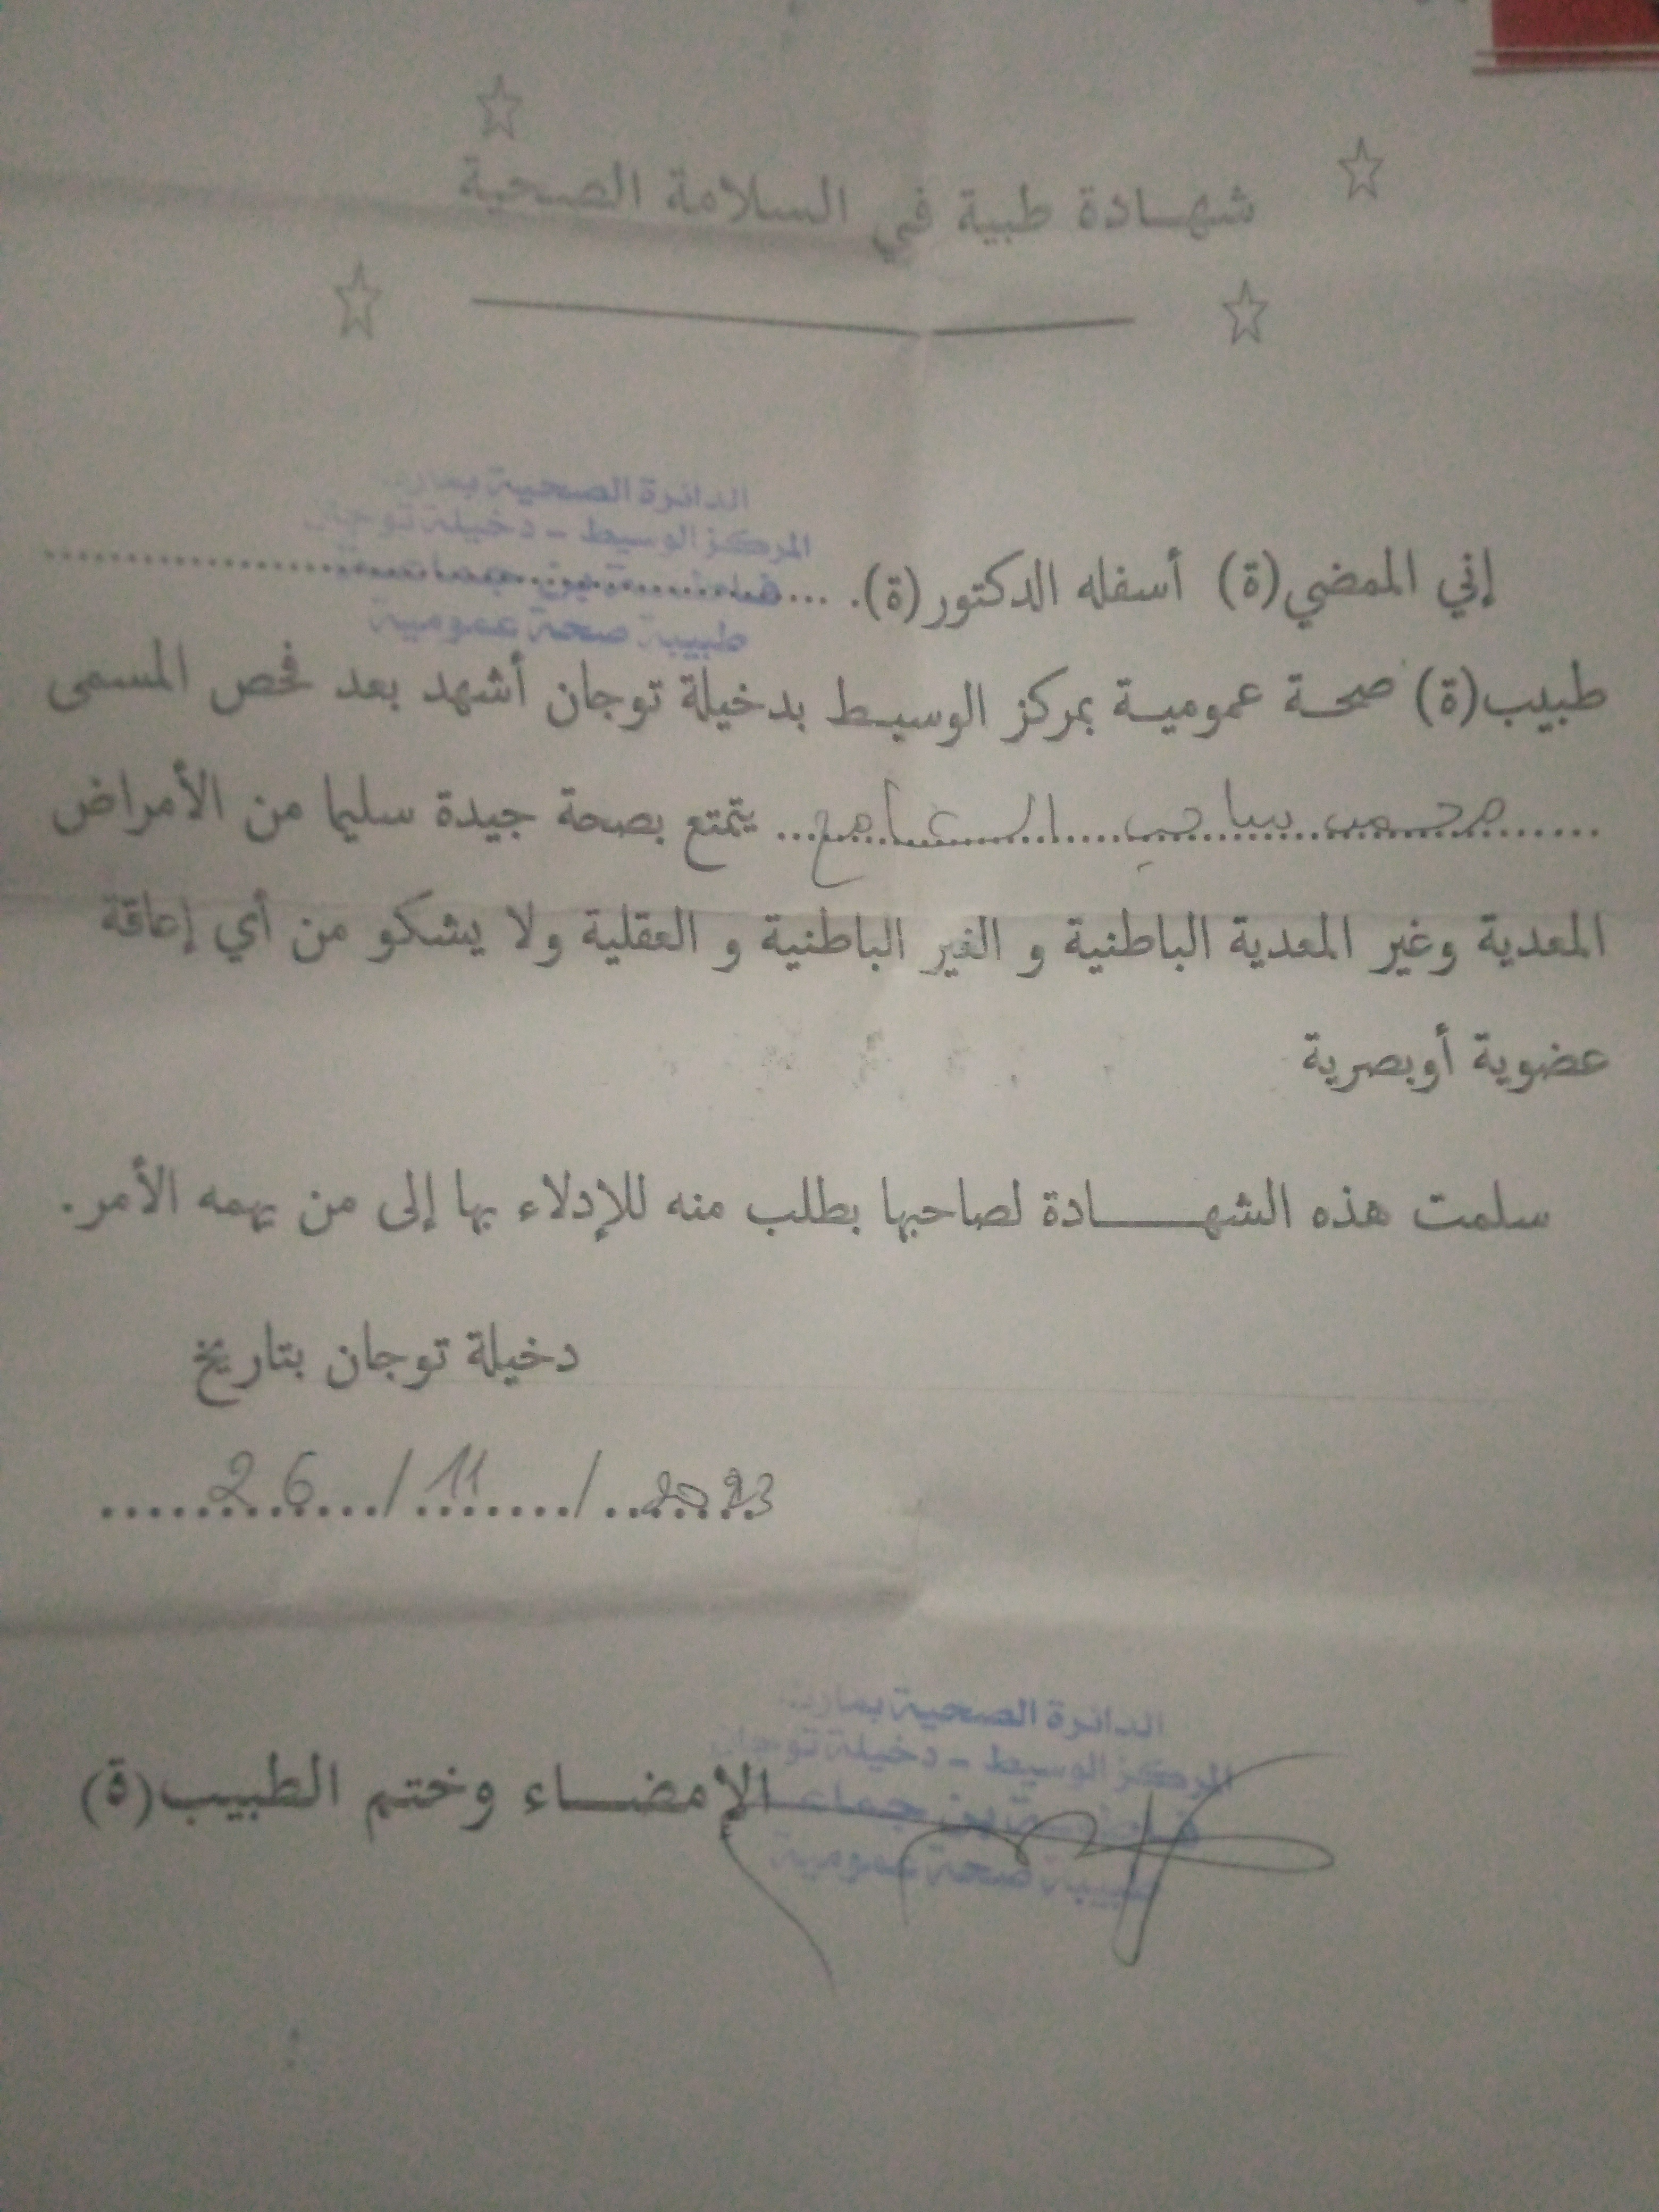 شهادة طبية في السلامة الصحية
الدائرة الصحية بمارث
المركز الوسيط - دخيلة توجان
إني الممضي(ة) أسفله الدكتور(ة). ........................................
طبيبة صحة عمومية
طبيب(ة) صحة عمومية بمركز الوسيط بدخيلة توجان أشهد بعد فحص المسمى
محمد يتمتع بصحة جيدة سليما من الأمراض
المعدية وغير المعدية الباطنية و الغير الباطنية و العقلية ولا يشكو من أي إعاقة
عضوية أوبصرية
سلمت هذه الشهادة لصاحبها بطلب منه للإدلاء بها إلى من يهمه الأمر.
دخيلة توجان بتاريخ
26/11/2023
الدائرة الصحية بمارث
المركز الوسيط - دخيلة توجان
الإمضاء وختم الطبيب(ة)
بن جماعة
طبيبة صحة عمومية